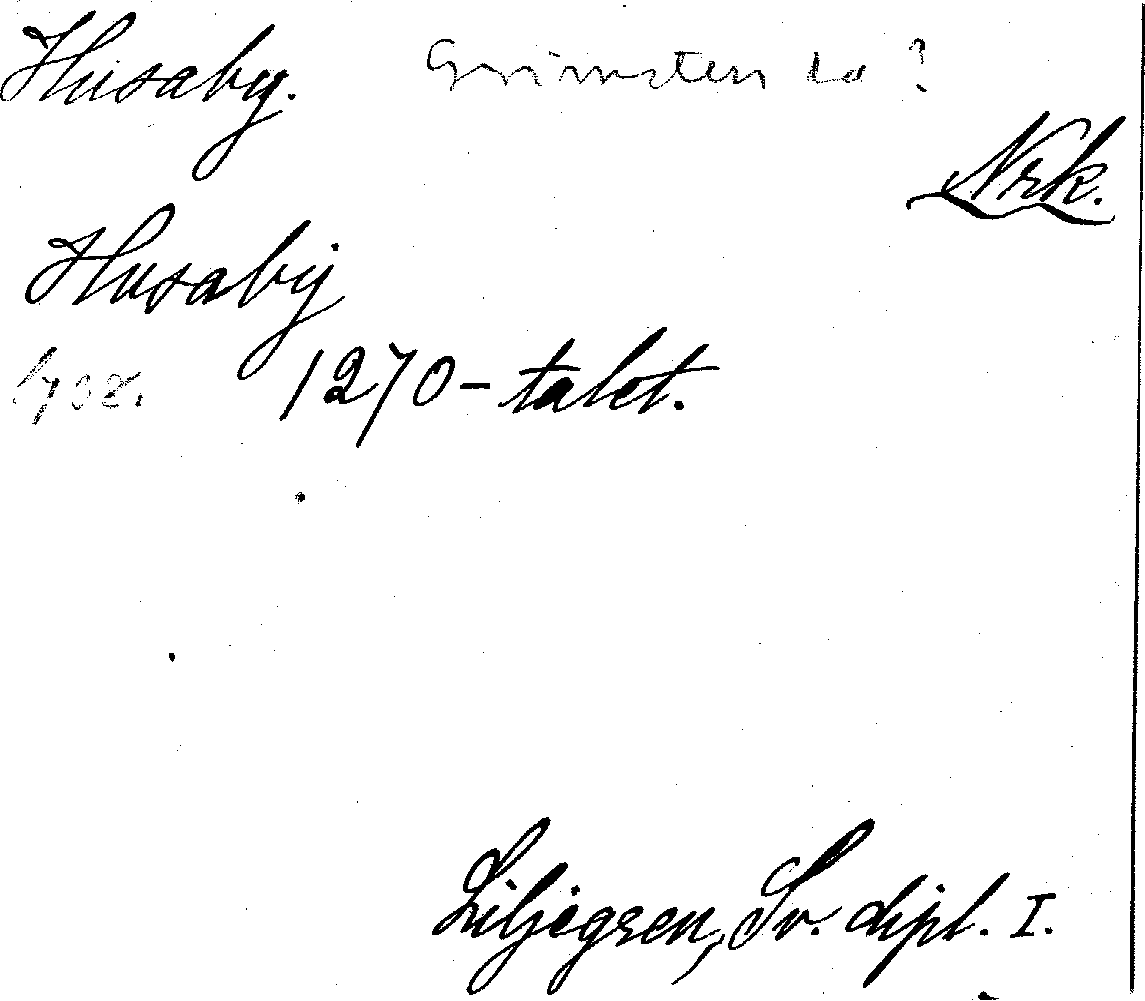 Husaby. Grimsten hd?
Nrk.
Husabij
1270-talet.
Liljegren, Sv. dipl. I.